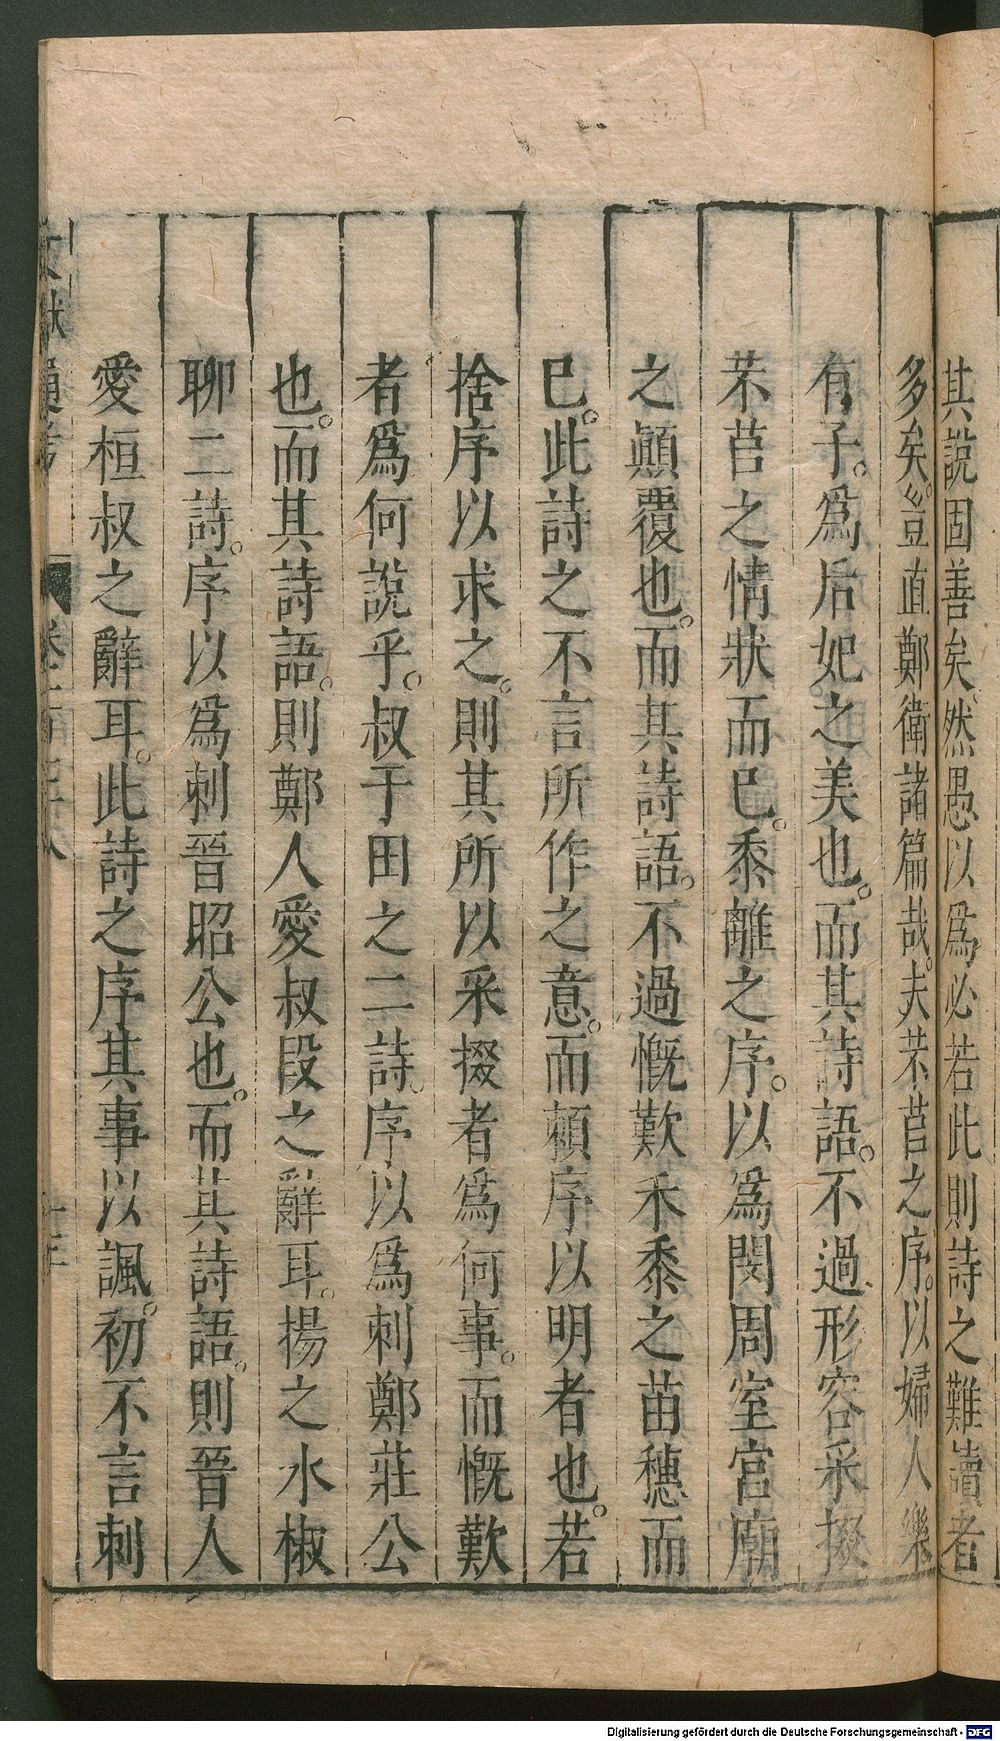 其說固善矣。然愚以爲必若此則詩之難讀者
多矣。豈直鄭衛諸篇哉。夫芣苢之序。以婦人樂
有子。爲后妃之美也。而其詩語。不過形容采掇
芣苢之情狀而已。黍離之序。以爲閔周室宮廟
之顚覆也。而其詩語。不過慨歎禾黍之苗穗而
已。此詩之不言所作之意。而賴序以明者也。若
捨序以求之。則其所以采掇者爲何事。而慨歎
者爲何說乎。叔于田之二詩。序以爲刺鄭莊公
也。而其詩語。則鄭人愛叔段之辭耳。揚之水椒
聊二詩。序以爲刺晉昭公也。而其詩語。則晉人
愛桓叔之辭耳。此詩之序其事以諷。初不言刺
Digitalisierung gefördert durch die Deutsche Forschungsgemeinschaft - DFG